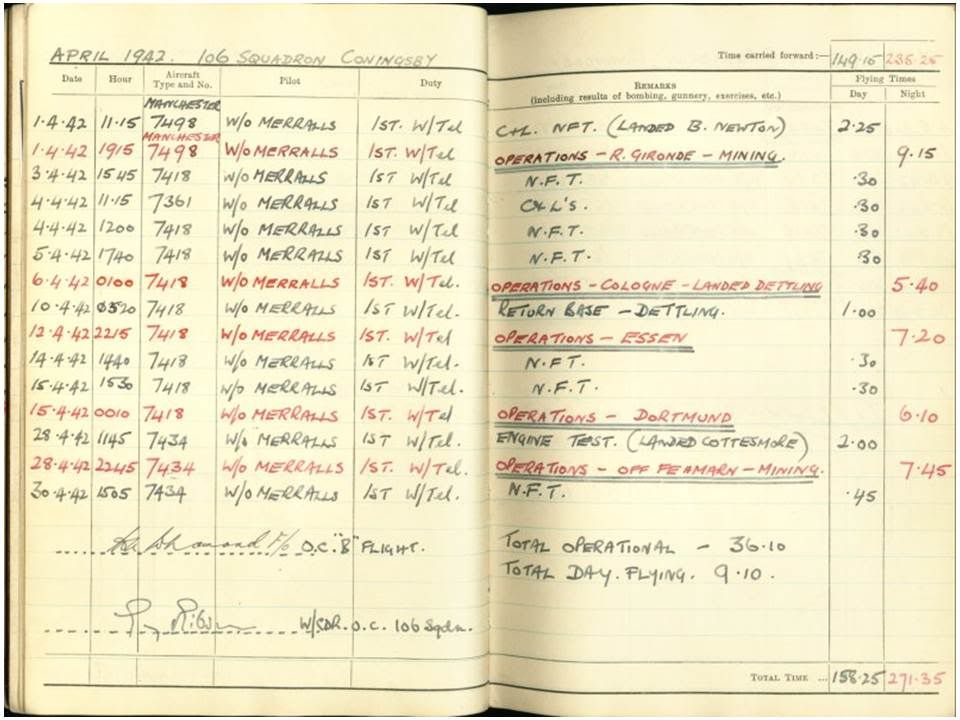 APRIL 1942. 106 SQUADRON CONINGSBY Time carried forward:— 149.15 235.25
Date Hour Aircraft Type and No. Pilot Duty REMARKS (including results of bombing, gunnery, exercises, etc.) Flying Times Day Night
MANCHESTER
1.4.42 11.15 7498 W/O MERRALLS 1ST. W/Tel C+L. NFT. (LANDED B. NEWTON) 2.25
MANCHESTER
1.4.42 1915 7498 W/O MERRALLS 1ST. W/Tel OPERATIONS – R. GIRONDE – MINING. 9.15
3.4.42 1545 7418 W/O MERRALLS 1ST W/Tel N.F.T. .30
4.4.42 11.15 7361 W/O MERRALLS 1ST W/Tel C+L'S. .30
4.4.42 1200 7418 W/O MERRALLS 1ST W/Tel N.F.T. .30
5.4.42 1740 7418 W/O MERRALLS 1ST W/Tel N.F.T. .30
6.4.42 0100 7418 W/O MERRALLS 1ST W/Tel. OPERATIONS – COLOGNE – LANDED DETTLING 5.40
10.4.42 0520 7418 W/O MERRALLS 1ST W/Tel. RETURN BASE – DETTLING. 1.00
12.4.42 2215 7418 W/O MERRALLS 1ST. W/Tel OPERATIONS – ESSEN 7.20
14.4.42 1440 7418 W/O MERRALLS 1ST W/Tel. N.F.T. .30
15.4.42 1530 7418 W/O MERRALLS 1ST W/Tel. N.F.T. .30
15.4.42 0010 7418 W/O MERRALLS 1ST. W/Tel OPERATIONS – DORTMUND 6.10
28.4.42 1145 7434 W/O MERRALLS 1ST W/Tel. ENGINE TEST. (LANDED COTTESMORE) 2.00
28.4.42 2245 7434 W/O MERRALLS 1ST. W/Tel. OPERATIONS – OFF FEHMARN – MINING. 7.45
30.4.42 1505 7434 W/O MERRALLS 1ST W/Tel. N.F.T. .45
O.C. "B" FLIGHT. TOTAL OPERATIONAL – 36.10
TOTAL DAY. FLYING. 9.10.
W/CDR. O.C. 106 Sqdn.
TOTAL TIME ... 158.25 271.35